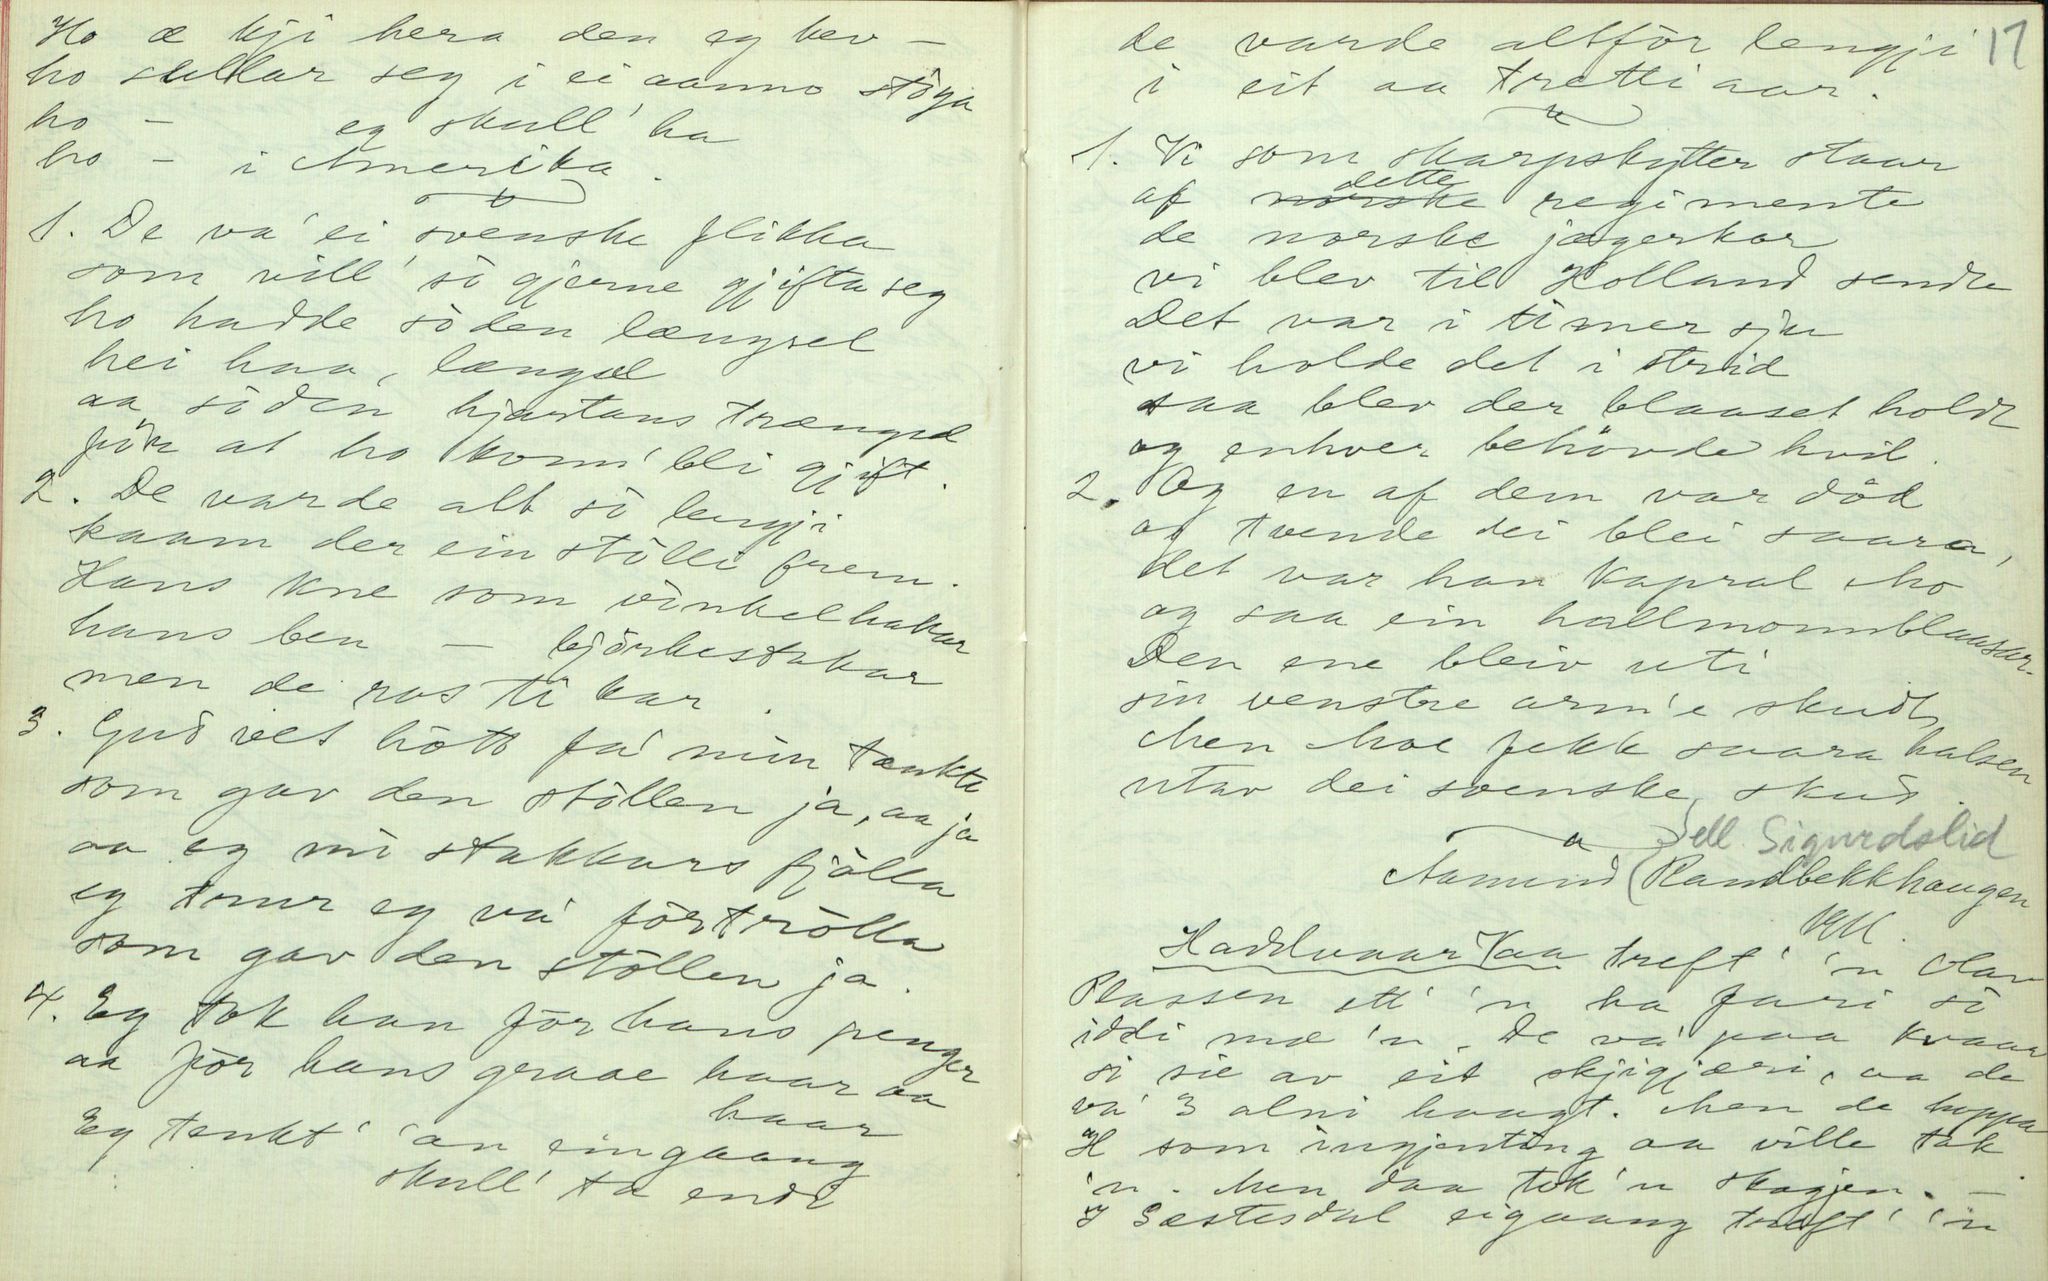 Ho æ kji hera den eg hev –
ho stellar seg i ei aanno stōga
ho – eg skull' ha
ho – i Amerika.
1. De va' ei svenske flikka
som vill' så gjerne gjifta seg
ho hadde söden længsel
hei haa, længsel
aa söden hjartans trængsel
för at ho kom' bli gjift.
2. De varde alt så lengji
kaam der ein stölli frem.
Hans kne som vinkelhakar
hans ben – bjørkestakar
men de ros ti kar.
3. Gud vet hött fa' min tankte
som gav den stöllen ja, aa ja
aa eg mi stakkars fjölla
eg trur eg va' förtrölla
som gav den stöllen ja.
4. Eg tok han för hans penger
aa för hans graae haar aa
haar
Eg tenkt' 'an eingaang
skull' ta ende
17
de varde altför lengji
i eit aa tretti aar.
1. Vi som skarpskytter staar
dette
af norske regimente
de norske jægerkor
vi blev til Holland sendt
Det var i timer sju
vi holde det i strid
saa blev der blaaset holdt
og enhver behövde hvil.
2. Og en af dem var död
og tvende dei blei saara,
det var han Kapral Mo
og saa ein hallmonnblaasar.
Den ene bleiv uti
sin venstre arm'e skudt
Men Moe fekk saara halsen
utav dei svenske skud.
Sell. Sigurdslid
Aamund (Randbekkhaugen
Hadlvaar Kaa treft' 'n Olav
Plassen ett' 'n ha fari så
iddi mæ 'n. De va' paa kvaar
si sie av eit skjigjæri, aa de
va' 3 alni haagt. Men de hoppa
H som ingjenting aa ville tak
'n. Men daa tok 'n skagjen. –
I Sæstesdal eigaang treft' 'n